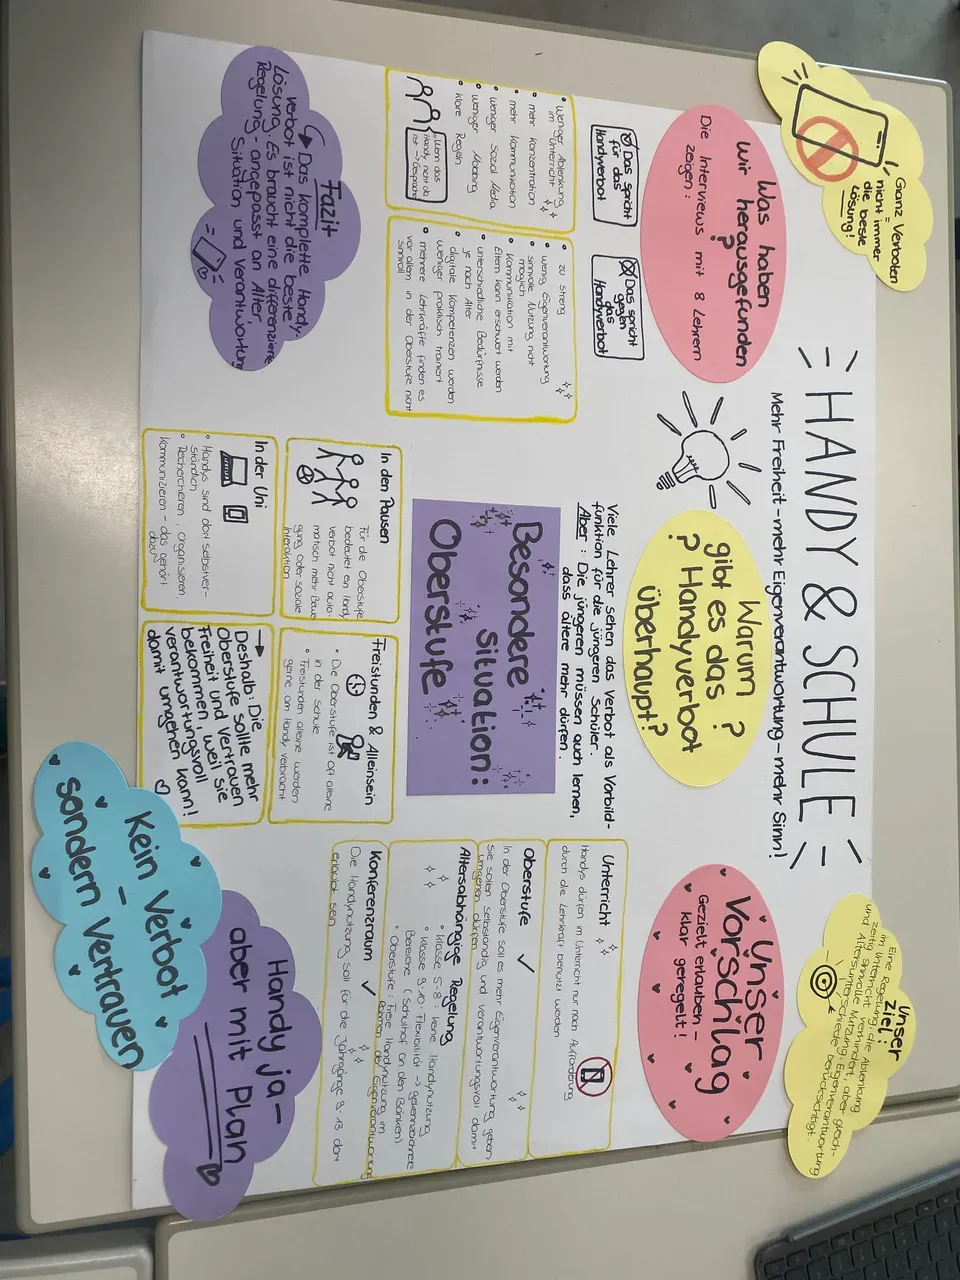 HANDY & SCHULE
Mehr Freiheit - mehr Eigenverantwortung - mehr Sinn!
Ganz Verboten
=
nicht immer
die beste
Lösung!
Was haben
wir herausgefunden
?
Die Interviews mit 8 Lehrern
zeigen:
Das spricht
für das
Handyverbot
• Weniger Ablenkung
im Unterricht
• mehr Konzentration
• mehr Kommunikation
• weniger Social Media
• weniger Mobbing
• klare Regeln
"Wenn das
Handy nicht da
ist → Gespräche
Das spricht
gegen
das
Handyverbot
• zu streng
• wenig Eigenverantwortung
• sinnvolle Nutzung nicht
möglich
• Kommunikation mit
Eltern kann erschwert werden
• unterschiedliche Bedürfnisse
je nach Alter
• digitale Kompetenzen werden
weniger praktisch trainiert
• mehrere Lehrkräfte finden es
vor allem in der Oberstufe nicht
sinnvoll
Fazit
→ Das komplette Handy-
verbot ist nicht die beste
Lösung. Es braucht eine differenzierte
Regelung - angepasst an Alter,
Situation und Verantwortung
Warum ?
gibt es das
? Handyverbot
überhaupt?
Viele Lehrer sehen das Verbot als Vorbild-
funktion für die jüngeren Schüler.
Aber: Die jüngeren müssen auch lernen,
dass ältere mehr dürfen.
Besondere
Situation:
Oberstufe
In den Pausen
Für die Oberstufe
bedeutet ein Handy
verbot nicht auto-
matisch mehr Bewe
gung oder soziale
Interaktion
Freistunden & Alleinsein
• Die Oberstufe ist oft alleine
in der Schule
• Freistunden alleine werden
gerne am Handy verbracht
In der Uni
• Handys sind dort selbstver-
ständlich
• Recherchieren, organisieren
kommunizieren - das gehört
dazu
→ Deshalb: Die
Oberstufe sollte mehr
Freiheit und Vertrauen
bekommen, weil sie
verantwortungsvoll
damit umgehen kann!
Unser
Ziel:
Eine Regelung, die Ablenkung
im Unterricht vermindert, aber gleich-
zeitig sinnvolle Nutzung, Eigenverantwortung
und Altersunterschiede berücksichtigt.
Unser
Vorschlag
Gezielt erlauben -
klar geregelt!
Unterricht
Handys dürfen im Unterricht nur nach Aufforderung
durch die Lehrkraft benutzt werden
Oberstufe ✓
In der Oberstufe soll es mehr Eigenverantwortung geben
Sie sollen selbständig und verantwortungsvoll damit
umgehen dürfen
Altersabhängige Regelung
• Klasse 5-8: keine Handynutzung
• Klasse 9-10: Flexibilität → gekennzeichnete
Bereiche (Schulhof an den Bänken)
• Oberstufe: Freie Handynutzung im
Rahmen der Eigenverantwortung
Konferenzraum ✓
Die Handynutzung soll für die Jahrgänge 9-13 dort
erlaubt sein
Handy ja -
aber mit Plan
Kein Verbot
-
sondern Vertrauen